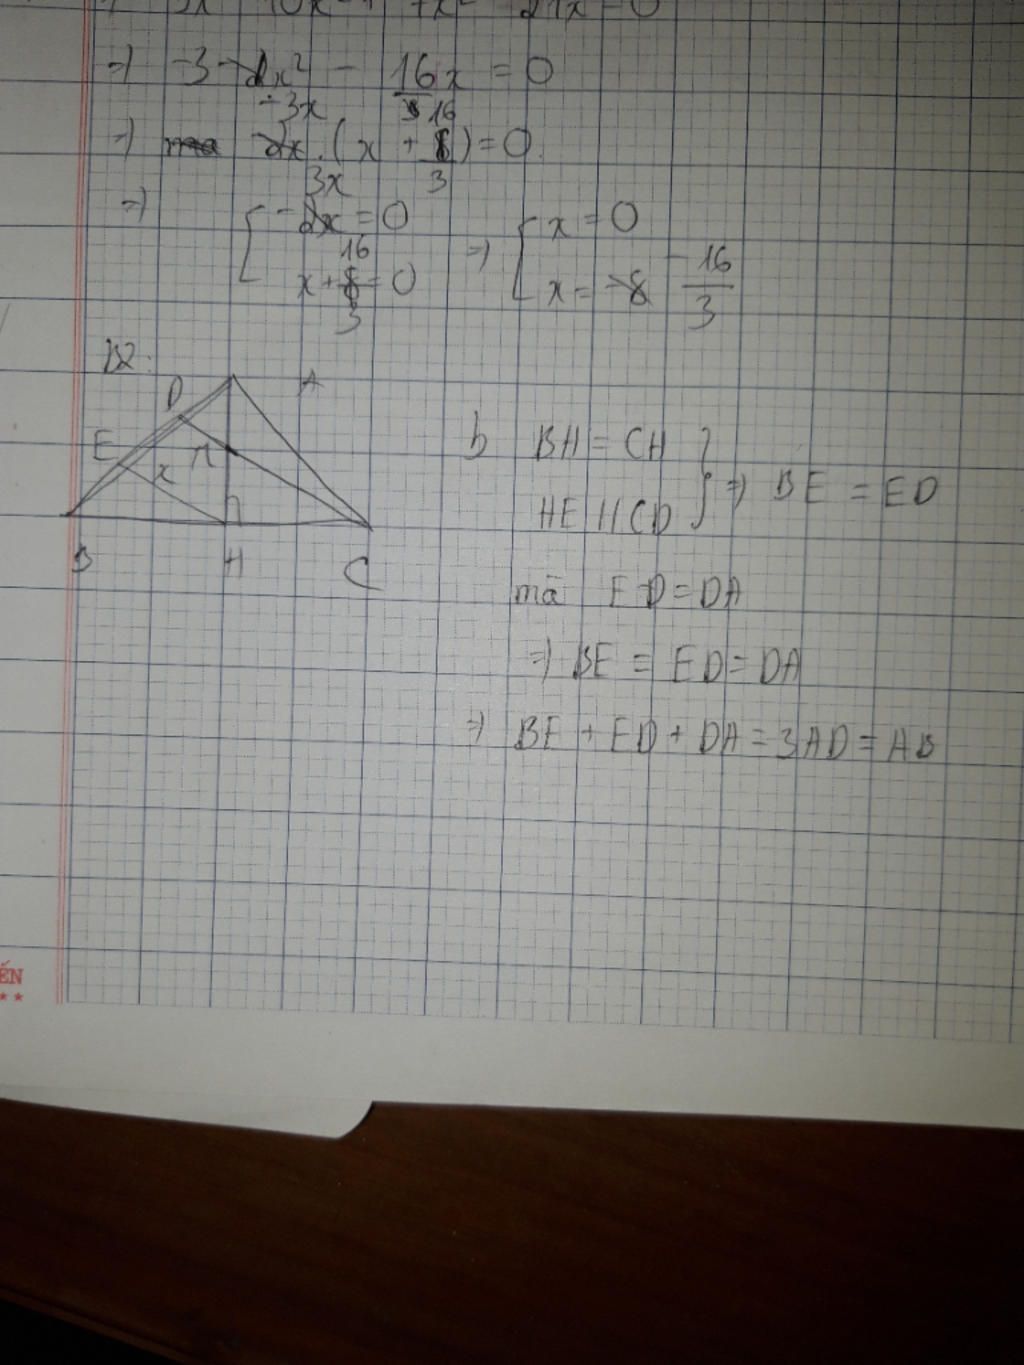 =) -3x² - 16x = 0
=) -3x.(x + 16/3) = 0
=) { -3x = 0 =) { x = 0
x + 16/3 = 0 x = -16/3
B2:
D A
E x π
B H C
b BH = CH } =) BE = ED
HE // CD
mà ED = DA
=) BE = ED = DA
=) BE + ED + DA = 3AD = AB
ẾN
★ ★